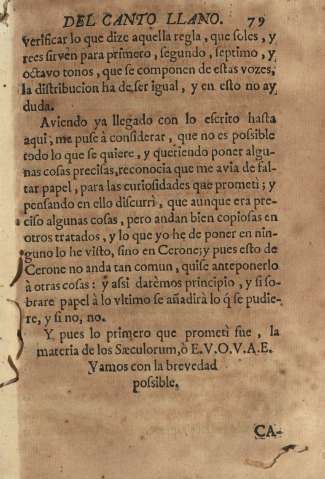 DEL CANTO LLANO. 79
verificar lo que dize aquella regla, que soles, y
rees sirven para primero, segundo, septimo, y
octavo tonos, que se componen de estas vozes,
la distribucion ha de ser igual, y en esto no ay
duda.
Aviendo ya llegado con lo escrito hasta
aqui, me puse à considerar, que no es possible
todo lo que se quiere, y queriendo poner algu-
nas cosas precisas, reconocia que me avia de fal-
tar papel, para las curiosidades que prometi; y
pensando en ello discurri, que aunque era pre-
ciso algunas cosas, pero andan bien copiosas en
otros tratados, y lo que yo he de poner en nin-
guno lo he visto, sino en Cerone; y pues esto de
Cerone no anda tan comun, quise anteponerlo
à otras cosas: y assi darèmos principio, y si so-
brare papel à lo vltimo se añadirà lo q̃ se pudie-
re, y si no, no.
Y pues lo primero que prometi fue, la
materia de los Sæculorum, ò E.V.O.V.A.E.
Vamos con la brevedad
possible.
CA-